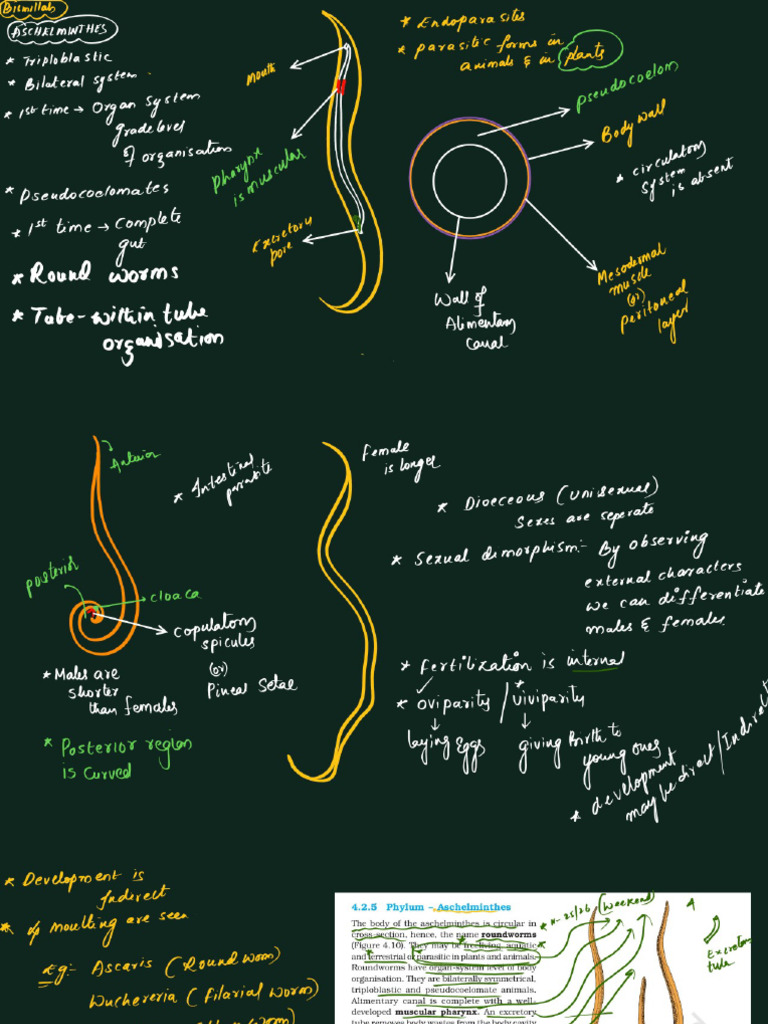 Bismillah
ASCHELMINTHES
* Triploblastic
* Bilateral system
* 1st time → Organ system
grade level
of organisation
* Pseudocoelomates
* 1st time → Complete
gut
* Round worms
* Tube-within tube
organisation
Mouth
Pharynx
is muscular
Excretory
pore
* Endoparasites
* parasitic forms in
animals & in plants
Pseudocoelom
Body wall
* circulatory
system
is absent
Mesodermal
muscle
(or)
Peritoneal
layer
Wall of
Alimentary
Canal
Anterior
* Intestinal
parasite
posterior
cloaca
copulatory
spicules
(or)
Pineal Setae
* Males are
shorter
than females
* Posterior region
is curved
Female
is longer
* Dioeceous (unisexual)
Sexes are seperate
* Sexual dimorphism:- By observing
external characters
we can differentiate
males & females
* Fertilization is internal
* oviparity / viviparity
laying Eggs
giving Birth to
young ones
* development
may be direct/Indirect
* Development is
Indirect
* moulting are seen
Eg:- Ascaris (Round worm)
Wuchereria (Filarial worm)
4.2.5 Phylum – Aschelminthes
The body of the aschelminthes is circular in
cross-section, hence, the name roundworms
(Figure 4.10). They may be freeliving, aquatic
and terrestrial or parasitic in plants and animals.
Roundworms have organ-system level of body
organisation. They are bilaterally symmetrical,
triploblastic and pseudocoelomate animals.
Alimentary canal is complete with a well-
developed muscular pharynx. An excretory
tube removes body wastes from the body cavity
(Weekend)
Excretory
tube